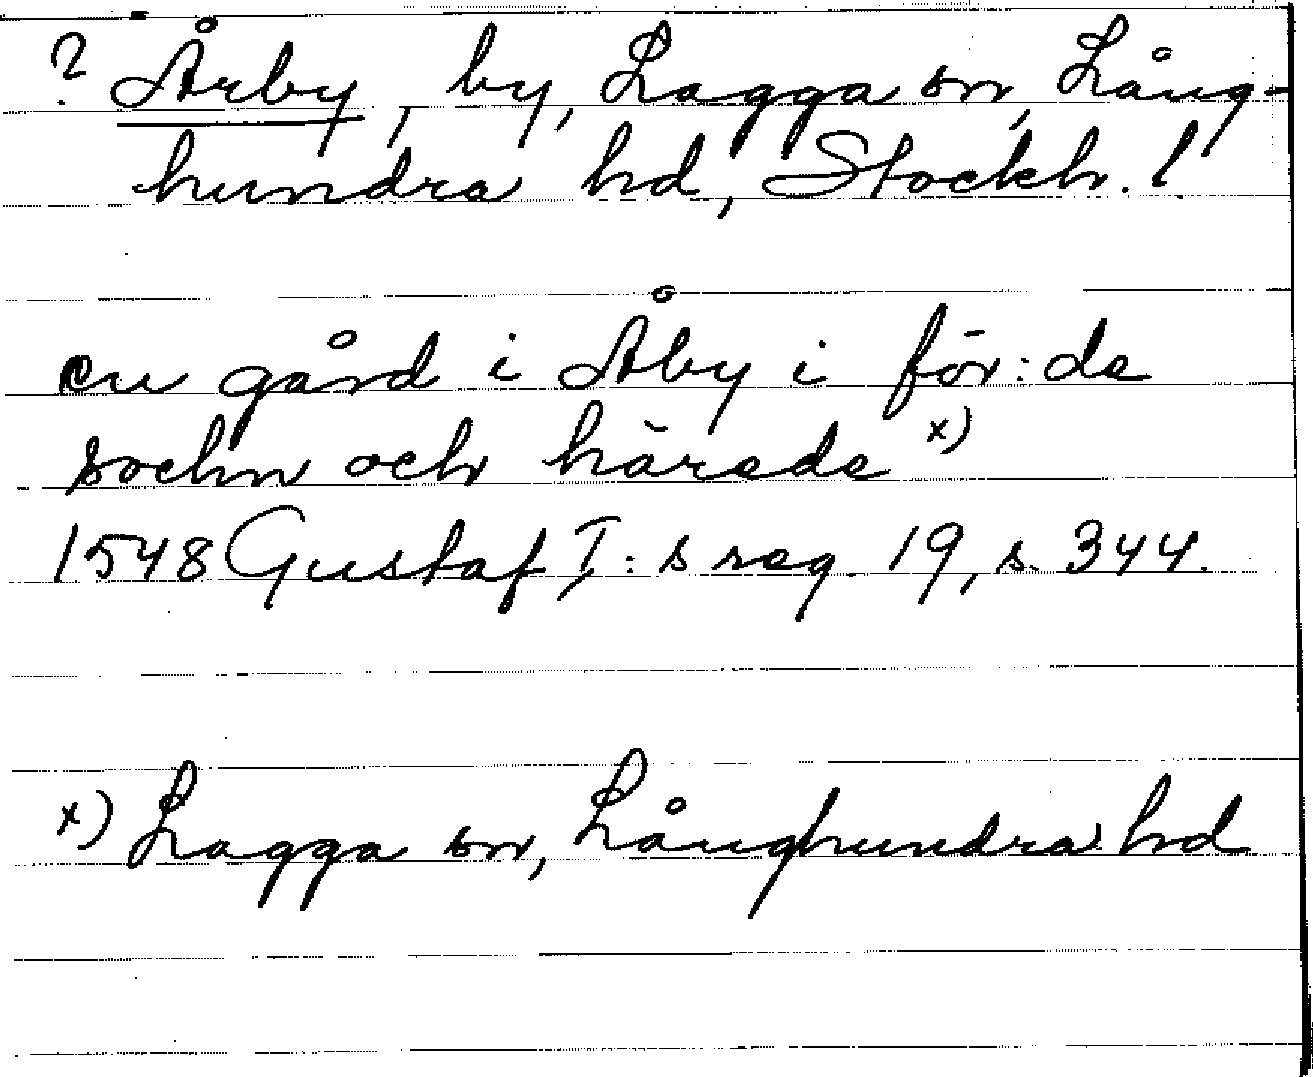 ? Årby, by, Lagga sn, Lång-
hundra hd, Stockh. l.
en gård i Åby i för:de
sochn och härede x)
1548 Gustaf I:s reg 19, s. 344.
x) Lagga sn, Långhundra hd